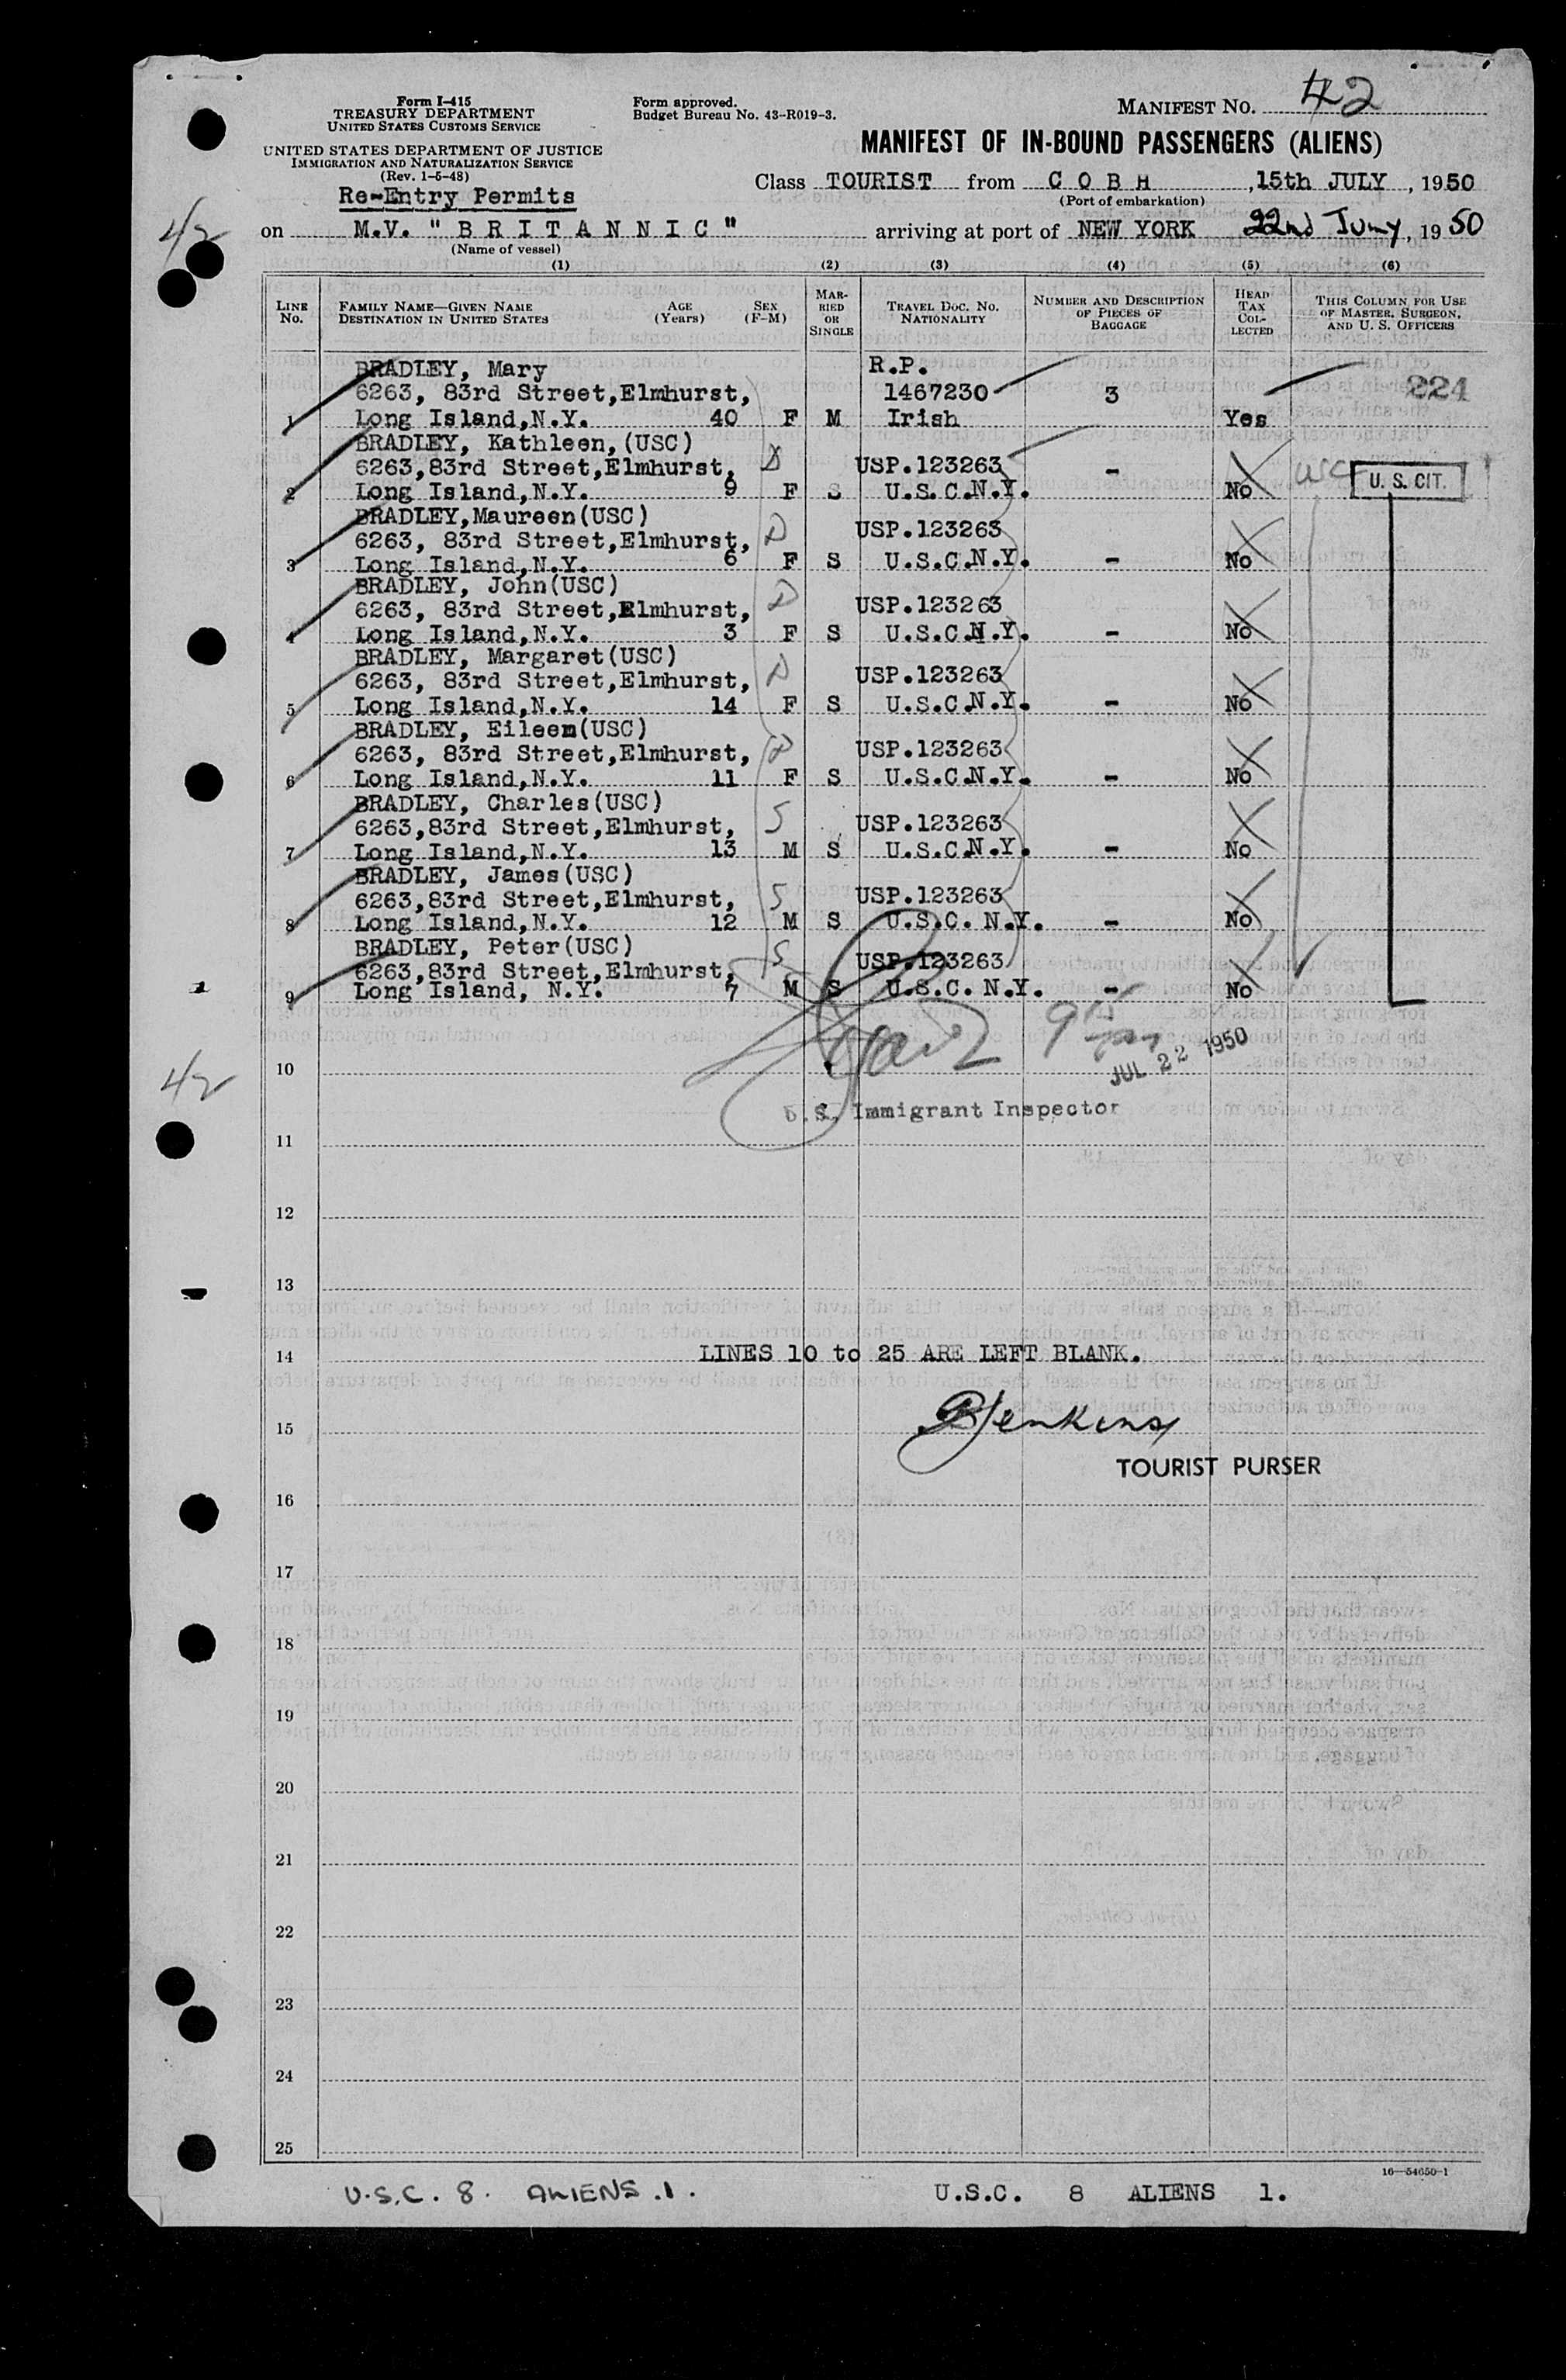 Form I-415
TREASURY DEPARTMENT
UNITED STATES CUSTOMS SERVICE
UNITED STATES DEPARTMENT OF JUSTICE
IMMIGRATION AND NATURALIZATION SERVICE
(Rev. 1-5-48)
Re-Entry Permits
Form approved.
Budget Bureau No. 43-R019-3.
MANIFEST NO. 42
MANIFEST OF IN-BOUND PASSENGERS (ALIENS)
Class TOURIST from C O B H, 15th JULY, 1950
(Port of embarkation)
42
on M.V. " B R I T A N N I C " arriving at port of NEW YORK 22nd July, 1950
(Name of vessel)
(1) (2) (3) (4) (5) (6)
LINE No.
FAMILY NAME—GIVEN NAME
DESTINATION IN UNITED STATES
AGE (Years)
SEX (F-M)
MARRIED OR SINGLE
TRAVEL DOC. NO. NATIONALITY
NUMBER AND DESCRIPTION OF PIECES OF BAGGAGE
HEAD TAX COLLECTED
THIS COLUMN FOR USE OF MASTER, SURGEON, AND U. S. OFFICERS
BRADLEY, Mary R.P.
6263, 83rd Street,Elmhurst, 1467230 3 224
1 Long Island,N.Y. 40 F M Irish Yes
BRADLEY, Kathleen,(USC)
6263,83rd Street,Elmhurst, D USP.123263 - USC U. S. CIT.
2 Long Island,N.Y. 9 F S U.S.C.N.Y. No
BRADLEY,Maureen(USC)
6263, 83rd Street,Elmhurst, D USP.123263
3 Long Island,N.Y. 6 F S U.S.C.N.Y. - No
BRADLEY, John(USC)
6263, 83rd Street,Elmhurst, D USP.123263
4 Long Island,N.Y. 3 F S U.S.C.N.Y. - No
BRADLEY, Margaret(USC)
6263, 83rd Street,Elmhurst, D USP.123263
5 Long Island,N.Y. 14 F S U.S.C.N.Y. - No
BRADLEY, Eileen(USC)
6263, 83rd Street,Elmhurst, D USP.123263
6 Long Island,N.Y. 11 F S U.S.C.N.Y. - No
BRADLEY, Charles(USC)
6263,83rd Street,Elmhurst, S USP.123263
7 Long Island,N.Y. 13 M S U.S.C.N.Y. - No
BRADLEY, James(USC)
6263,83rd Street,Elmhurst, S USP.123263
8 Long Island,N.Y. 12 M S U.S.C. N.Y. - No
BRADLEY, Peter(USC)
6263,83rd Street,Elmhurst, S USP.123263
9 Long Island, N.Y. 7 M S U.S.C. N.Y. - No
JUL 22 1950
42
10
U.S. Immigrant Inspector
11
12
13
14 LINES 10 to 25 ARE LEFT BLANK.
15 Jenkins
TOURIST PURSER
16
17
18
19
20
21
22
23
24
25
16—54650-1
U.S.C. 8. ALIENS .1. U.S.C. 8 ALIENS 1.